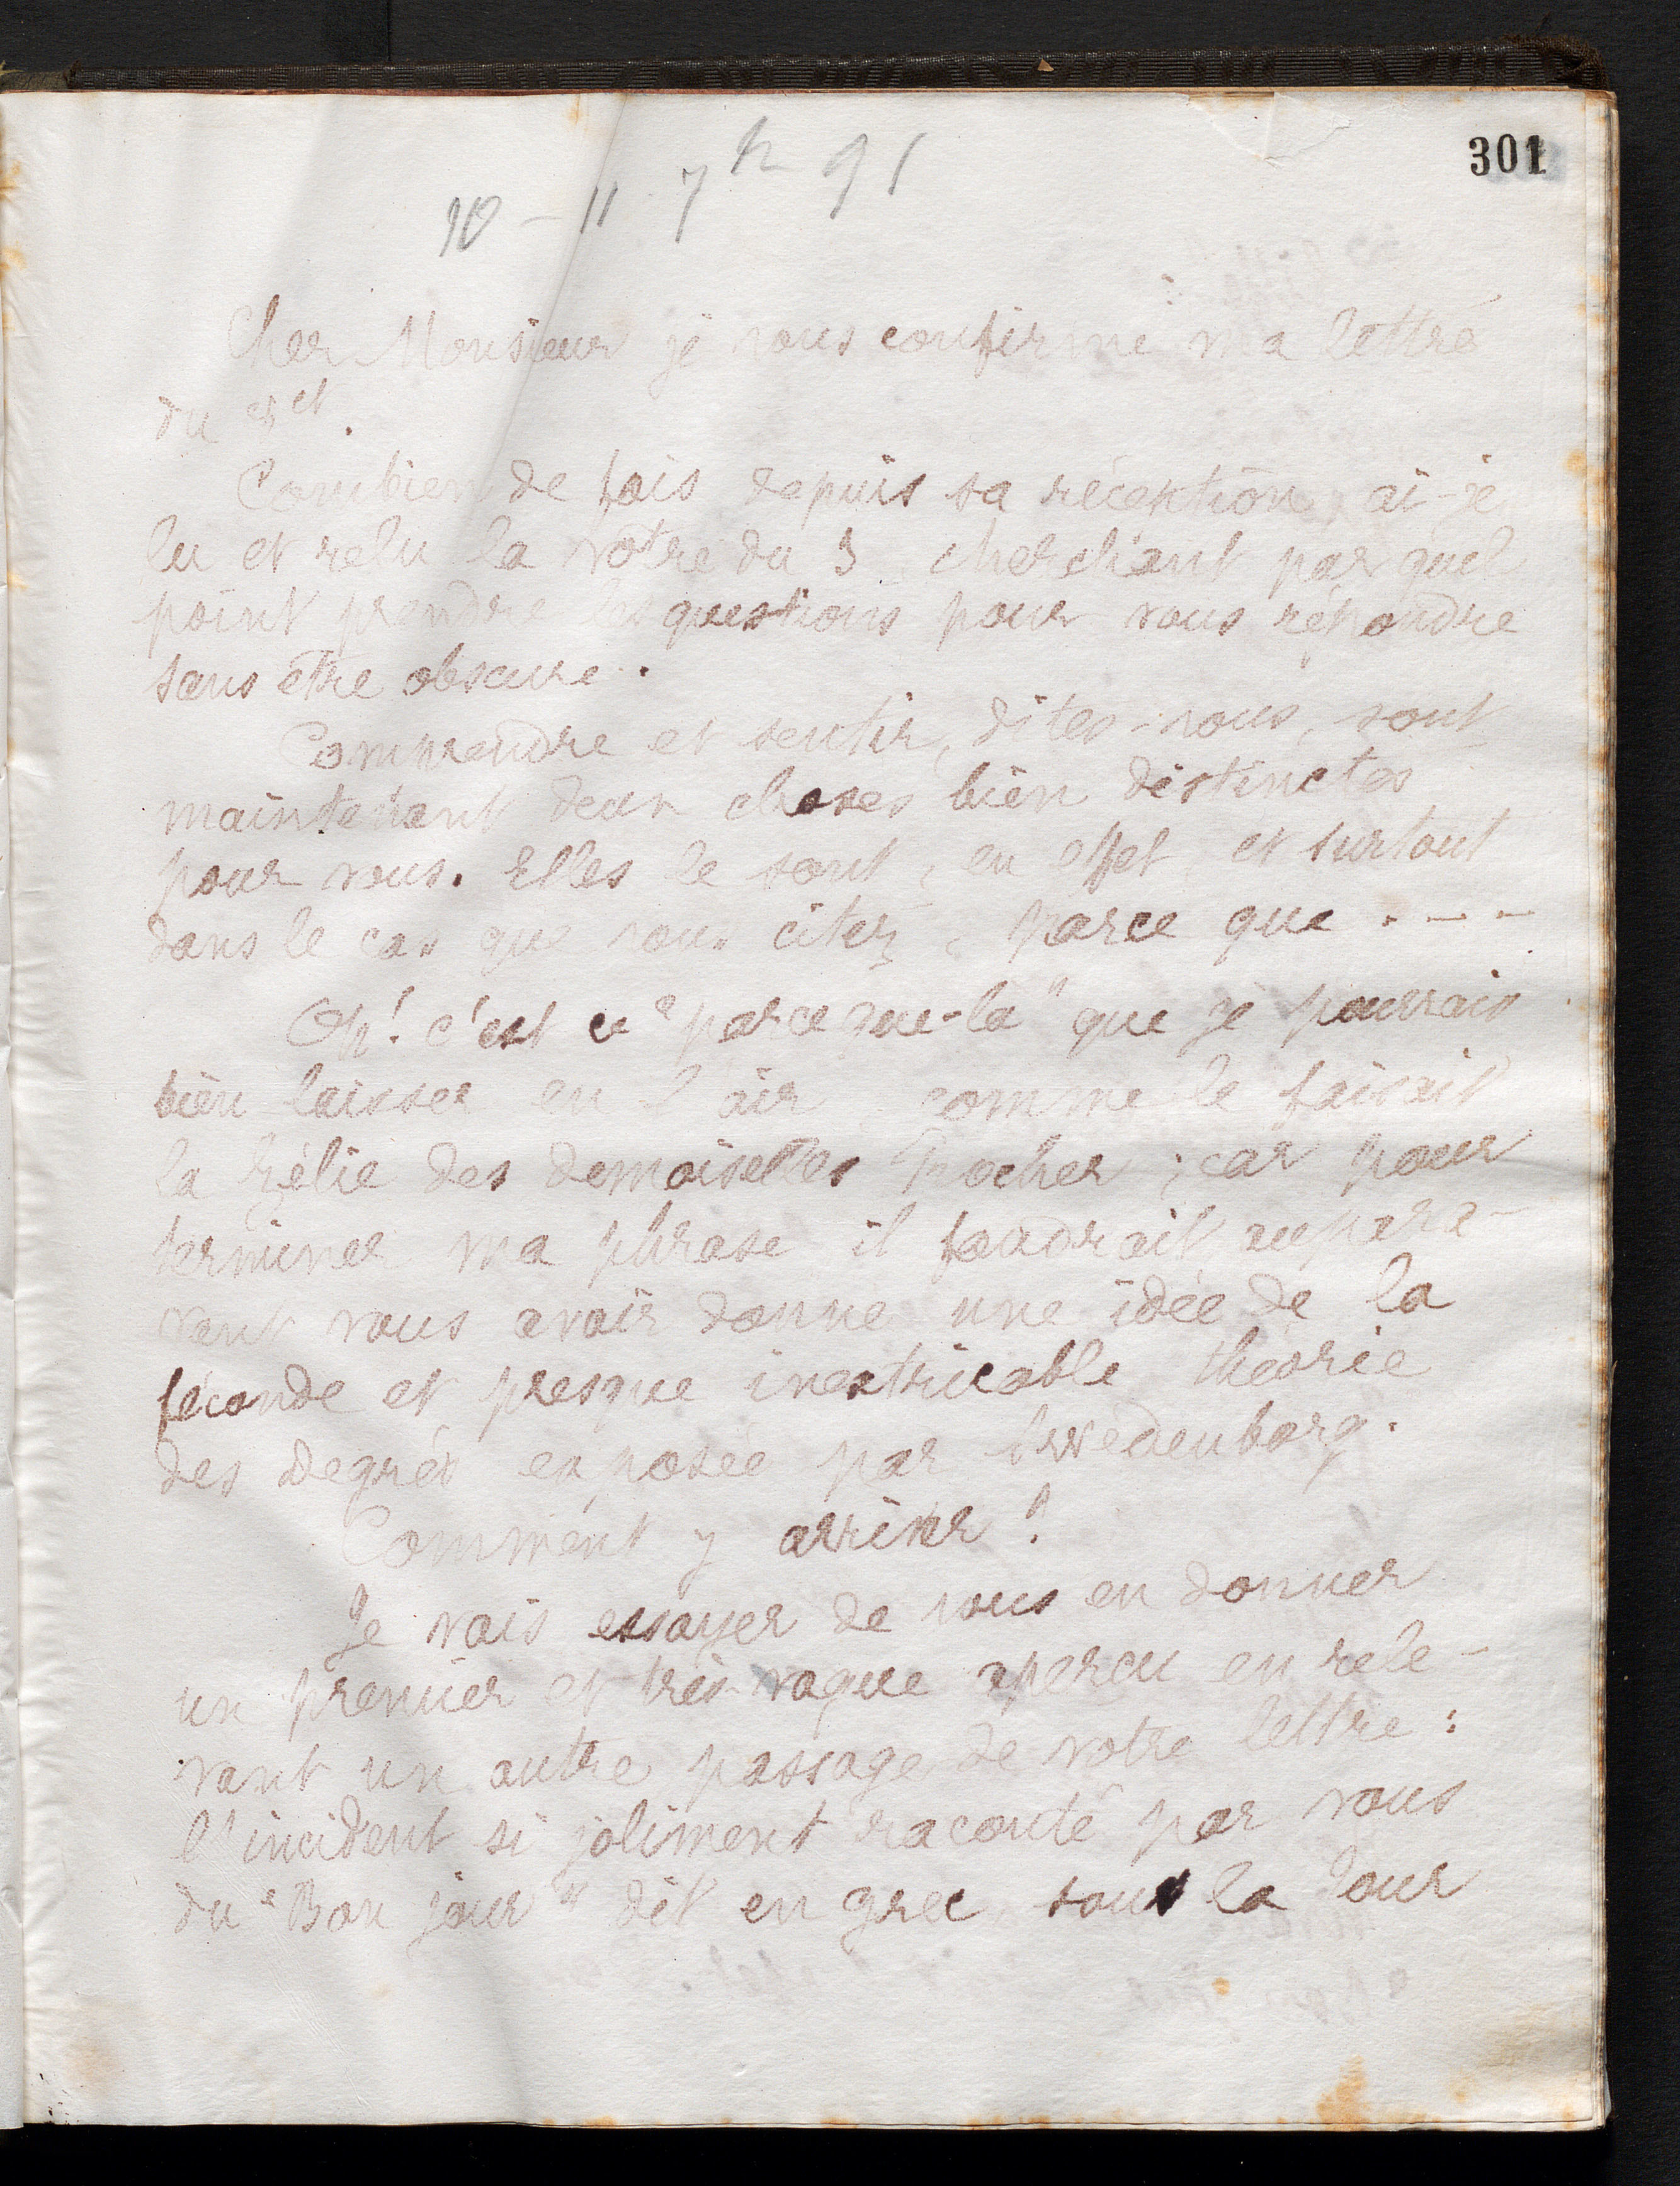 301
10-11 7h 91
Cher Monsieur je vous confirme ma lettre
du ct.
Combien de fois depuis sa réception, ai-je
lu et relu la votre du 3 cherchant par quel
point prendre les questions pour vous répondre
sans être obscure.
Comprendre et sentir, dites-vous, sont
maintenant deux choses bien distinctes
pour vous. Elles le sont, en effet, et surtout
dans le cas que vous citez, parce que . - -
Oh! c'est ce "parce que-là" que je pourrais
bien laisser en l'air comme le faisait
la Zélie des demoiselles Pocher ; car pour
terminer ma phrase il faudrait aupara-
vant vous avoir donné une idée de la
féconde et presque inextricable théorie
des Degrés exposée par Swedenborg.
Comment y arriver ?
Je vais essayer de vous en donner
un premier et très-vague apercu en rele-
vant un autre passage de votre lettre :
l'incident si joliment raconté par vous
du "Bon jour" dit en grec, sous la Tour